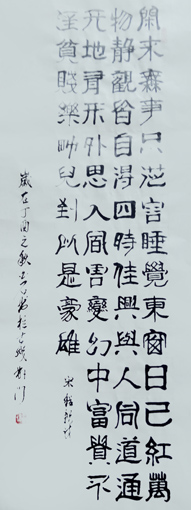 閒來無事只從容睡覺東窗日已紅萬
物静觀皆自得四時佳興與人同道通
天地有形外思入風雲變幻中富貴不
淫貧賤樂男兒到此是豪雄
宋
歲在丁酉之秋